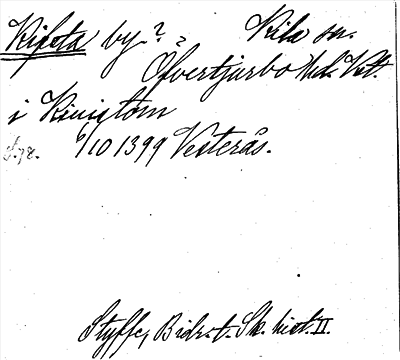 Kipsta by? ? Kila sn.
Öfvertjurbo hd. Vstl.
i Kinigtom
S. 78. 6/10 1399 Vesterås.
Styffe, Bidr. t. Sk. hist. II.